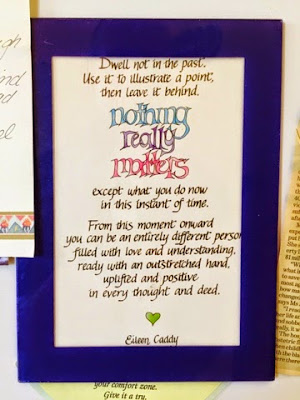 Dwell not in the past.
Use it to illustrate a point,
then leave it behind.
nothing
really
matters
except what you do now
in this instant of time.
From this moment onward
you can be an entirely different person
filled with love and understanding,
ready with an outstretched hand,
uplifted and positive
in every thought and deed.
Eileen Caddy
your comfort zone.
Give it a try.